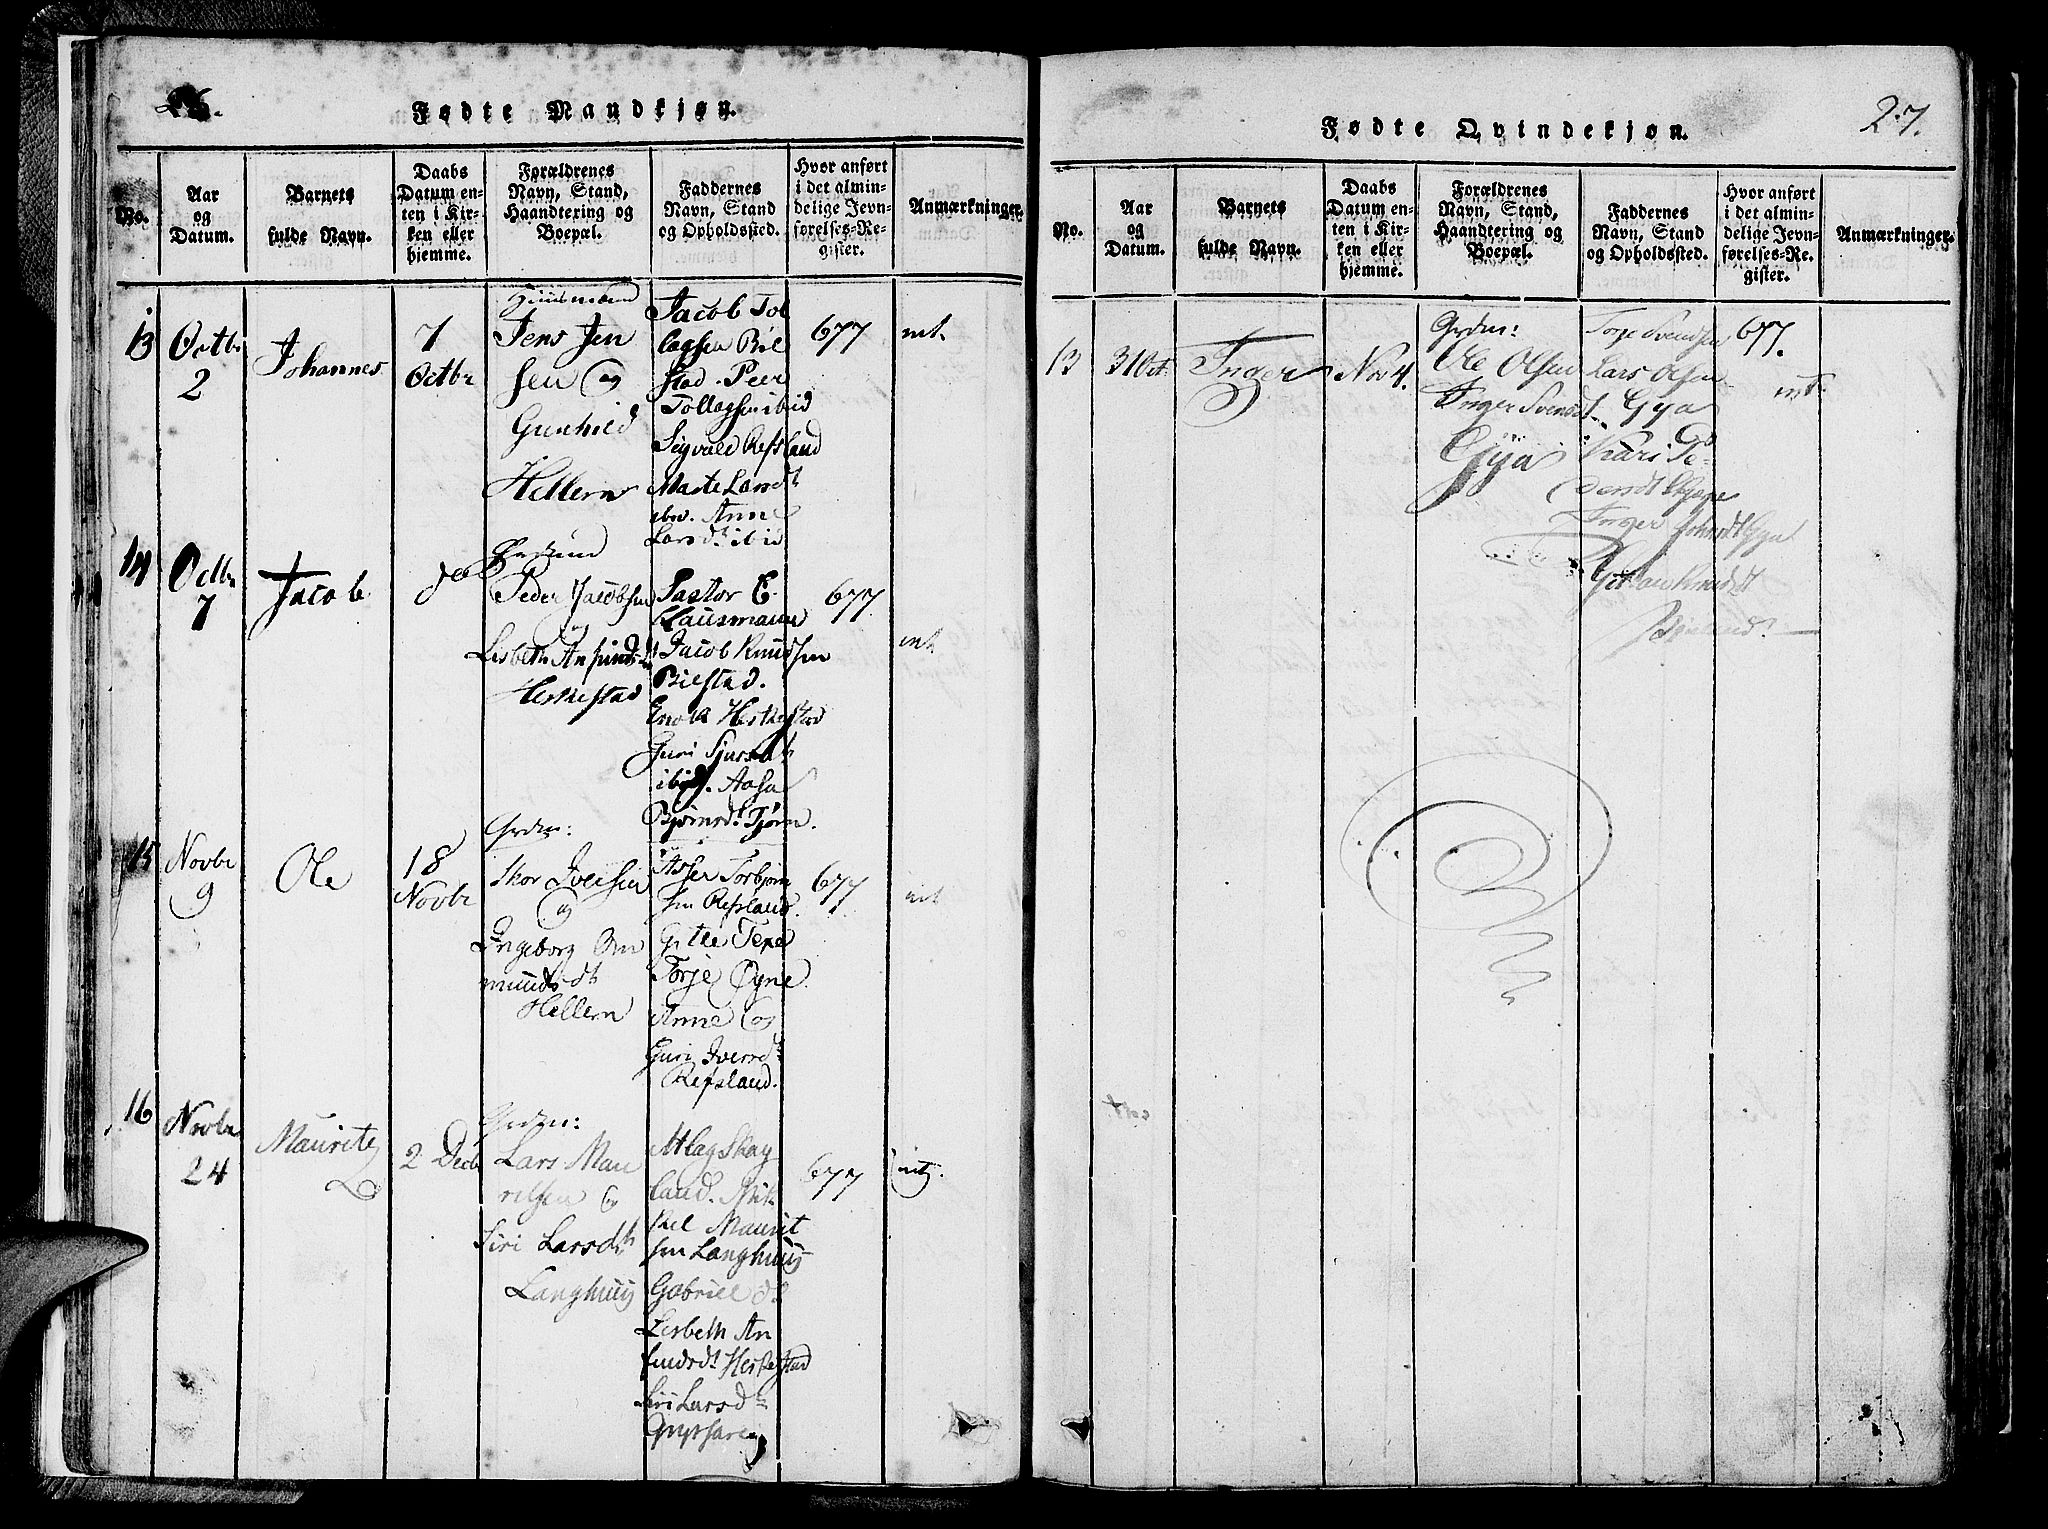 26.
Fødte Mandkjøn.
No.
Aar
og
Datum.
Barnets
fulde Navn.
Daabs
Datum en-
ten i Kir-
ken eller
hjemme.
Forældrenes
Navn, Stand,
Haandtering og
Boepæl.
Faddernes
Navn, Stand
og Opholdssted.
Hvor anført
i det almin-
delige Jevn-
førelses-Re-
gister.
Anmærkninger.
13
Octbr
2
Johannes
7
Octbr
Huusmand
Jens Jen
sen og
Gunhild
Hellern
Jacob Tol
lagsen Bil
stad. Peer
Tollagsen ibid
Sigvald Refsland
Marte Larsdt
Anne
Larsdt ibid
677
int.
14
Octbr
7
Jacob
do
Peder Jacobsen
og
Lisbeth Ansindsdt
Heskestad
Pastor E.
Clausmann
Jacob Knudsen
Bilstad.
Enok Heskestad
Guri Sjursdt
ibid. Aasa
Bjørnsdt Tjørn.
677
int
15
Novbr
9
Ole
18
Novbr
Grdm:
Thor Iversen
og
Ingeborg Om
mundsdt
Hellern
Asser Torbjørn
sen Refsland.
Gitle
Torje Øyne
Anne og
Guri Iversdt
Refsland.
677
int
16
Novbr
24
Mauritz
2 Decb
Grdm:
Lars Mau
ritsen og
Siri Larsdt
Langhuus
Atlag Skay
land. Mik
kel Maurit
sen Langhuus
Gabriel do
Lisbeth An
sindsdt Heskestad
Siri Larsdt
677
int.
27.
Fødte Qvindekjøn.
No.
Aar
og
Datum.
Barnets
fulde Navn.
Daabs
Datum en-
ten i Kir-
ken eller
hjemme.
Forældrenes
Navn, Stand,
Haandtering og
Boepæl.
Faddernes
Navn, Stand
og Opholdssted.
Hvor anført
i det almin-
delige Jevn-
førelses-Re-
gister.
Anmærkninger.
13
31 Oct.
Inger
Nov 4.
Grdm:
Ole Olsen
Inger Svensdt
Gya
Torge Svendsen
Lars Olsen
Gya
Kari Pe-
dersdt
Inger Johnsdt Gya
677.
int.